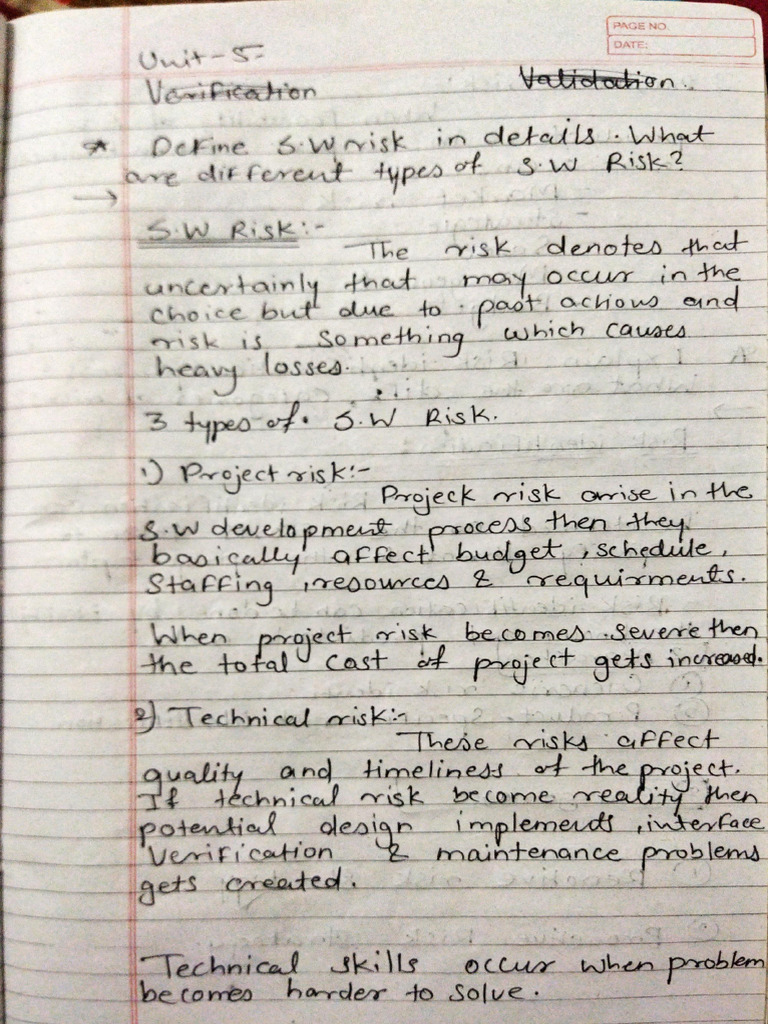 PAGE NO.
DATE:
Unit-5
Verification Validation.
* Define S.W risk in details. What
are different types of S.W Risk?
→
S.W Risk:-
The risk denotes that
uncertainly that may occur in the
choice but due to past actions and
risk is something which causes
heavy losses.
3 types of S.W Risk.
1) Project risk:-
Projeck risk arise in the
S.W development process then they
basically affect budget, schedule,
Staffing, resources & requirments.
When project risk becomes severe then
the total cost of project gets increased.
2) Technical risk:-
These risks affect
quality and timeliness of the project.
If technical risk become reality then
potential design implements, interface
Verification & maintenance problems
gets created.
Technical skills occur when problem
becomes harder to solve.